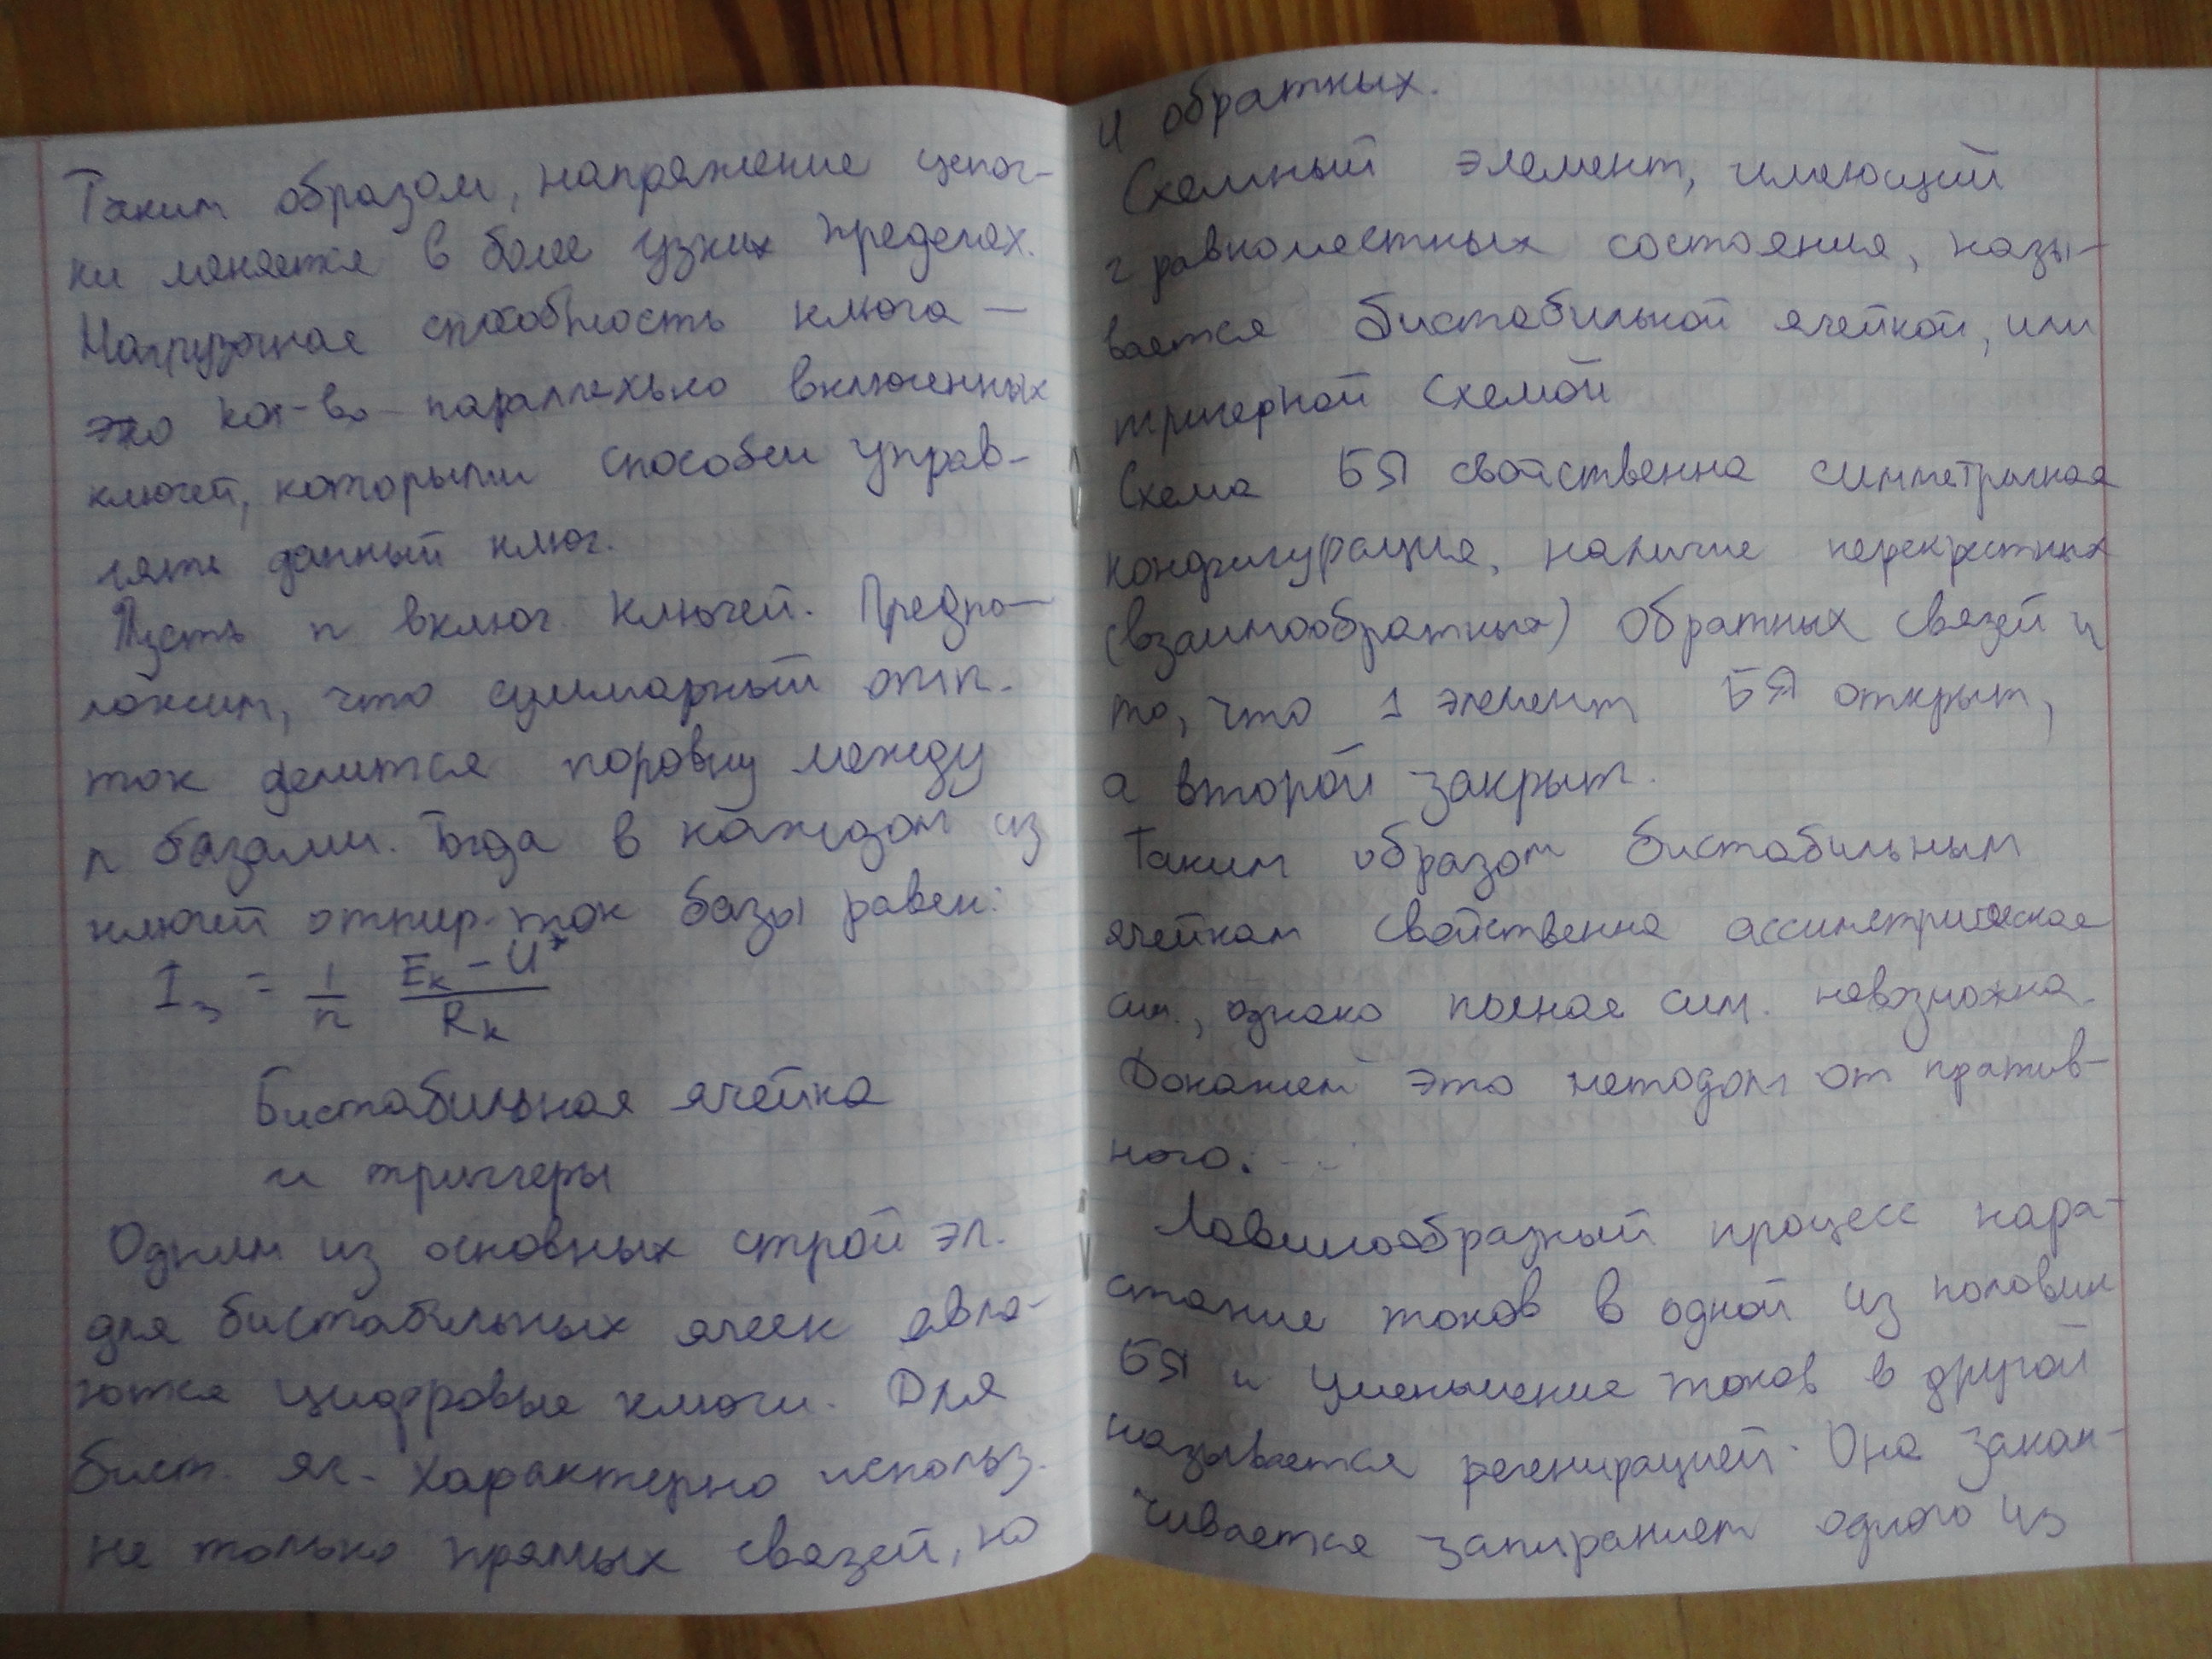 Таким образом, напряжение цепоч-
ки меняется в более узких пределах.
Нагрузочная способность ключа —
это кол-во параллельно включенных
ключей, которыми способен управ-
лять данный ключ.
Пусть n включ. ключей. Предпо-
ложим, что суммарный отп.
ток делится поровну между
n базами. Тогда в каждом из
ключей отпир. ток базы равен:
I = 1/n (Eк - U*)/Rк
Бистабильная ячейка
и триггеры
Одним из основных строй эл.
для бистабильных ячеек явля-
ются цифровые ключи. Для
бист. яч. характерно использ.
не только прямых связей, но
и обратных.
Схемный элемент, имеющий
2 равноместных состояния, назы-
вается бистабильной ячейкой, или
тригерной схемой
Схема БЯ свойственна симметричная
конфигурация, наличие перекрестных
(взаимообратных) обратных связей и
то, что 1 элемент БЯ открыт,
а второй закрыт.
Таким образом бистабильным
ячейкам свойственна ассиметрическая
сим., однако полная сим. невозможна.
Докажем это методом от против-
ного. ...
Лавинообразный процесс нара-
стание токов в одной из половин
БЯ и уменьшение токов в другой
называется регенирацией. Она закан-
чивается запиранием одного из